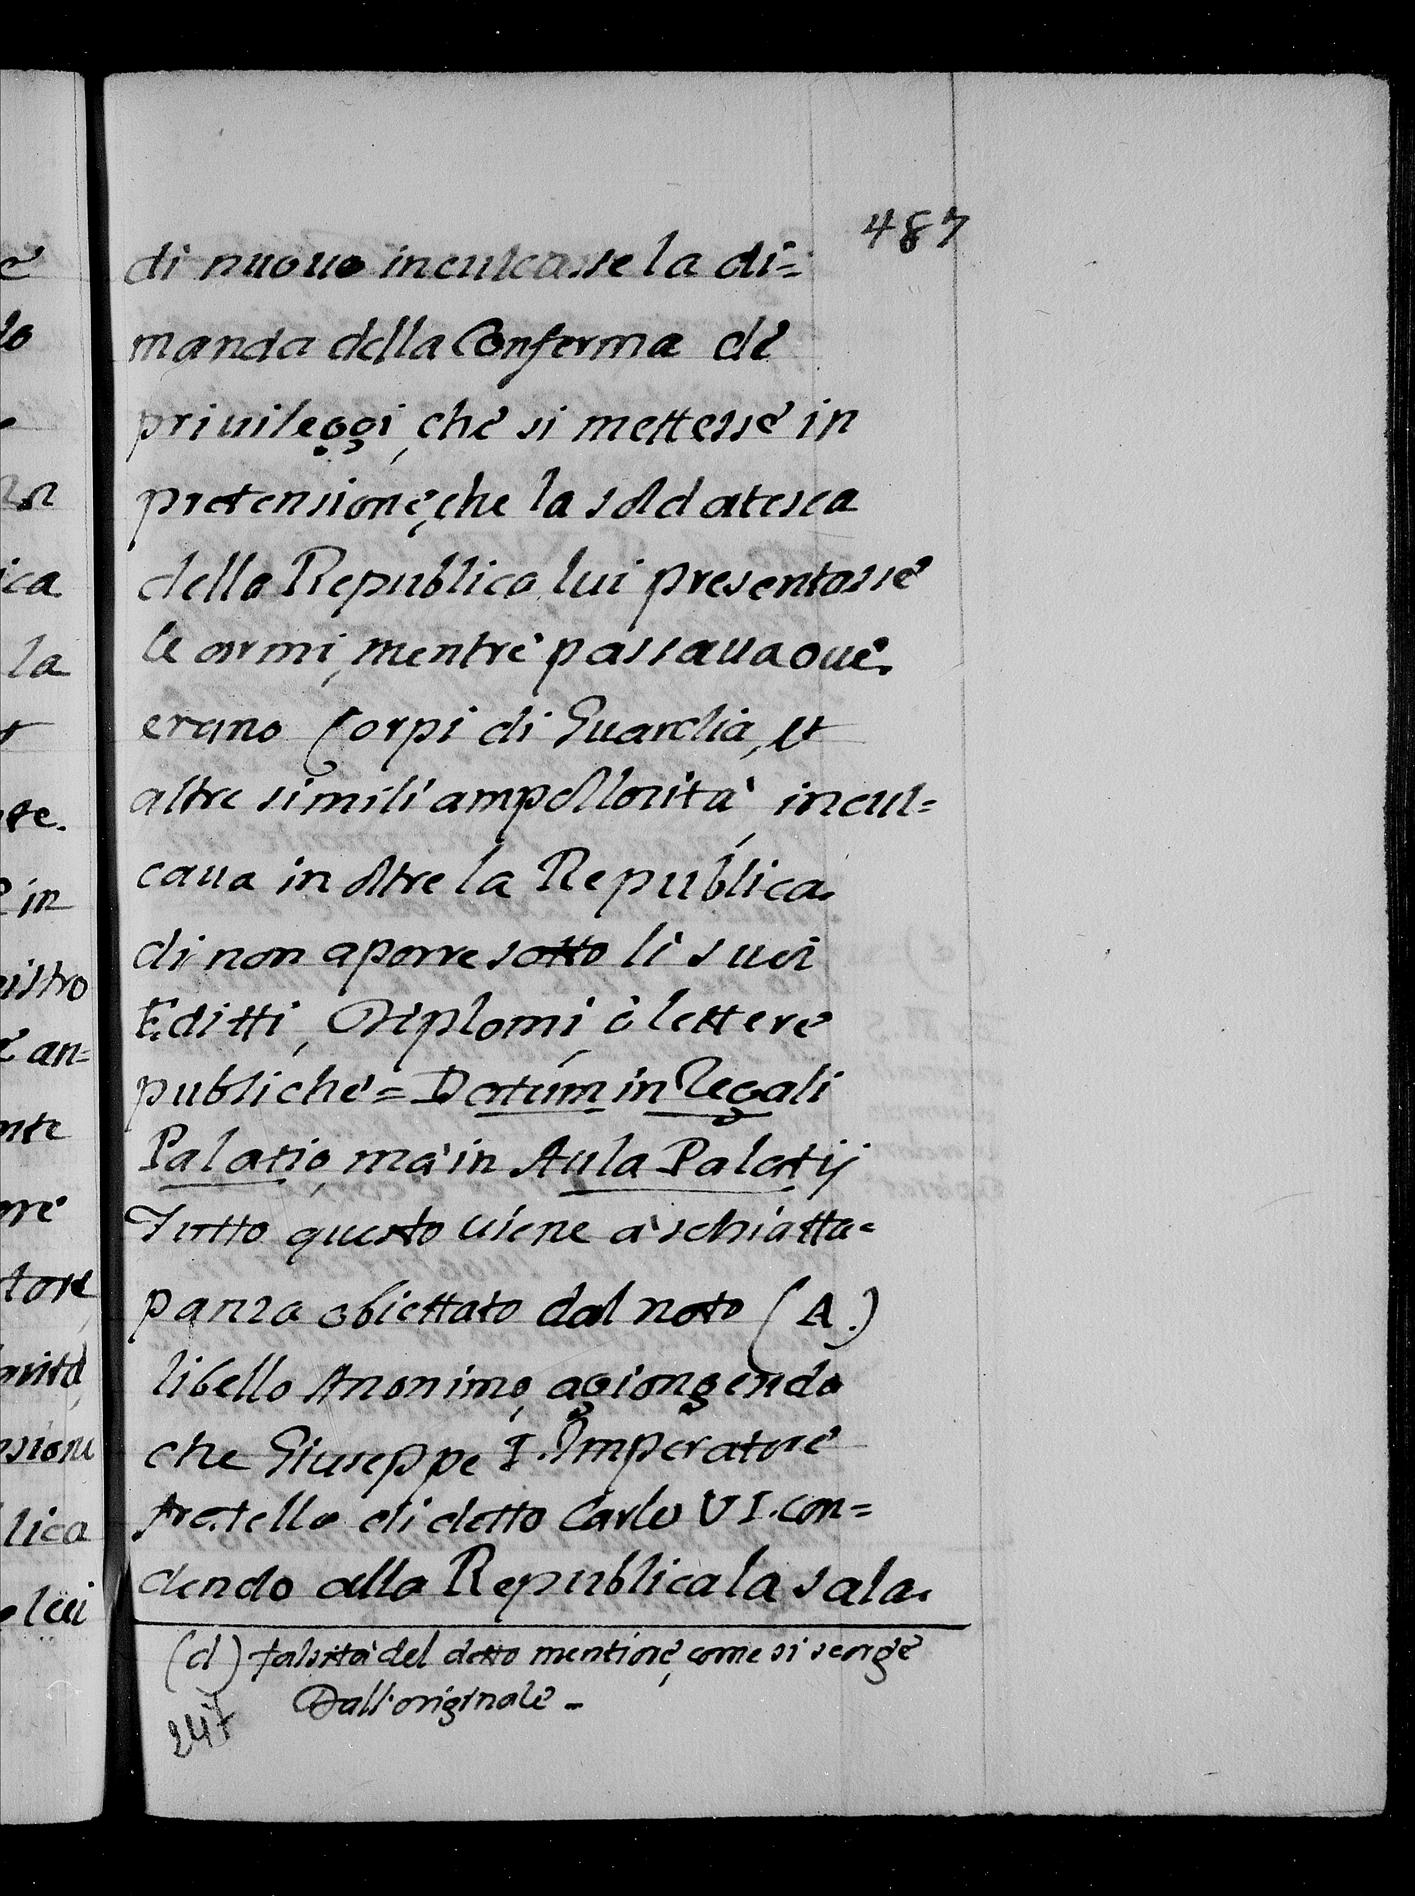 487
di nuouo inculcasse la di=
manda della Conferma de
priuileggi, che si mettesse in
pretensione, che la soldatesca
della Republica lui presentasse
le armi, mentre passaua oue
erano Corpi di Guardia, et
altre simili ampollosità, incul=
caua in oltre la Republica
di non aporre sotto li suoi
Editti, Diplomi, ò lettere
publiche = Datum in Regali
Palatio, mà in Aula Palatij
Tutto questo uiene à schiatta=
panza obiettato dal noto (A.)
libello Anonimo, agiongendo
che Giuseppe I. Imperatore
fratello di detto Carlo VI. con=
dendo alla Republica la sala
(d) falsità del detto mentione, come si scorge
Dall'originale -
247